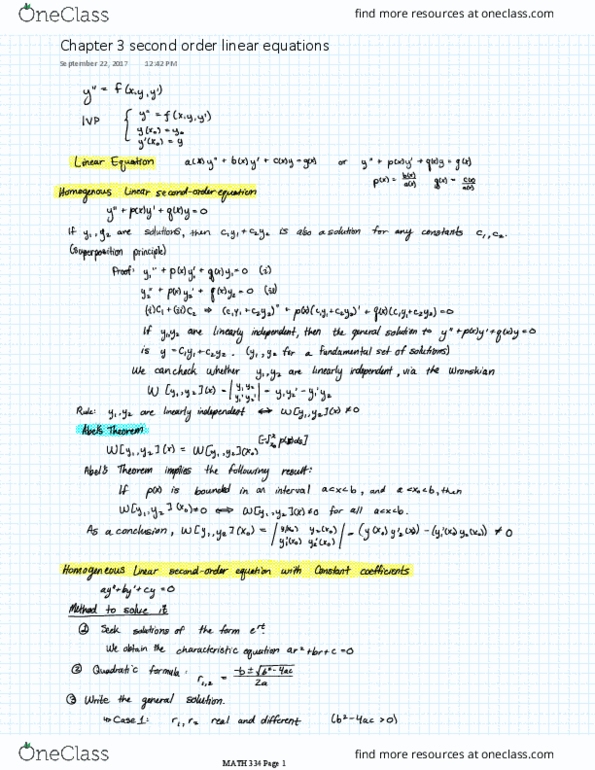 OneClass
find more resources at oneclass.com
Chapter 3 second order linear equations
September 22, 2017 12:42 PM
y" = f(x,y,y')
IVP { y" = f(x,y,y')
y(x₀) = y₀
y'(x₀) = y
Linear Equation a(x)y" + b(x)y' + c(x)y = g(x) or y" + p(x)y' + q(x)y = g(x)
p(x) = b(x)/a(x) q(x) = c(x)/a(x)
Homogenous Linear second-order equation
y" + p(x)y' + q(x)y = 0
If y₁, y₂ are solutions, then c₁y₁ + c₂y₂ is also a solution for any constants c₁, c₂.
(Superposition principle)
Proof: y₁" + p(x)y₁' + q(x)y₁ = 0 (i)
y₂" + p(x)y₂' + q(x)y₂ = 0 (ii)
(i)C₁ + (ii)C₂ ⇒ (c₁y₁ + c₂y₂)" + p(x)(c₁y₁ + c₂y₂)' + q(x)(c₁y₁ + c₂y₂) = 0
If y₁, y₂ are linearly independent, then the general solution to y" + p(x)y' + q(x)y = 0
is y = C₁y₁ + c₂y₂. (y₁, y₂ for a fundamental set of solutions)
We can check whether y₁, y₂ are linearly independent, via the Wronskian
W[y₁, y₂](x) = | y₁ y₂ / y₁' y₂' | = y₁y₂' - y₁'y₂
Rule: y₁, y₂ are linearly independent ⇔ W[y₁, y₂](x) ≠ 0
Abel's Theorem
W[y₁, y₂](x) = W[y₁, y₂](x₀)
Abel's Theorem implies the following result:
If p(x) is bounded in an interval a<x<b, and a<x₀<b, then
W[y₁, y₂](x₀) ≠ 0 ⇔ W[y₁, y₂](x) ≠ 0 for all a<x<b.
As a conclusion, W[y₁, y₂](x₀) = | y₁(x₀) y₂(x₀) / y₁'(x₀) y₂'(x₀) | = (y(x₀) y'₂(x₀)) - (y₁'(x₀) y₂(x₀)) ≠ 0
Homogeneous Linear second-order equation with Constant coefficients
ay" + by' + cy = 0
Method to solve it
① Seek solutions of the form eʳᵗ.
We obtain the characteristic equation ar² + br + c = 0
② Quadratic formula: r₁,₂ = (-b ± √(b² - 4ac)) / 2a
③ Write the general solution.
↪ Case 1: r₁, r₂ real and different (b² - 4ac > 0)
MATH 334 Page 1
OneClass
find more resources at oneclass.com